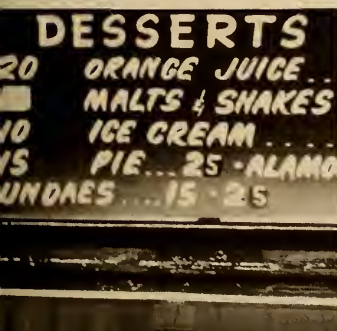 DESSERTS
20 ORANGE JUICE..
MALTS & SHAKES
10 ICE CREAM....
15 PIE...25-ALAMO
UNDAES....15-25